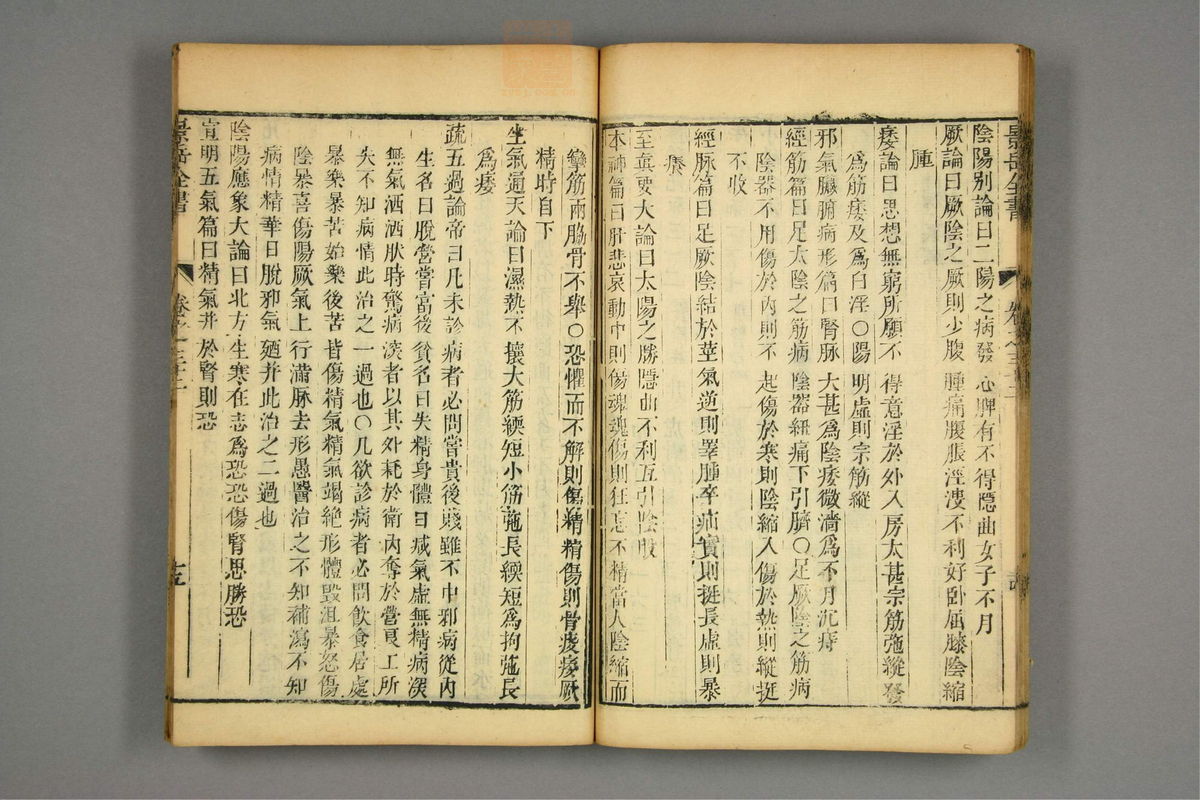 陰陽別論曰二陽之病發心脾有不得隱曲女子不月
厥論曰厥陰之厥則少腹腫痛腹脹涇溲不利好卧屈膝陰縮
腫
痿論曰思想無窮所願不得意淫於外入房太甚宗筋弛縱發
爲筋痿及爲白淫○陽明虛則宗筋縱
邪氣臟腑病形篇曰腎脉大甚爲陰痿微濇爲不月沉痔
經筋篇曰足太陰之筋病陰器紐痛下引臍○足厥陰之筋病
陰器不用傷於內則不起傷於寒則陰縮入傷於熱則縱挺
不收
經脉篇曰足厥陰結於莖氣逆則睪腫卒疝實則挺長虛則暴
癢
至眞要大論曰太陽之勝隱曲不利互引陰股
本神篇曰肝悲哀動中則傷魂魂傷則狂忘不精當人陰縮而
攣筋兩脇骨不舉○恐懼而不解則傷精精傷則骨痠痿厥
精時自下
生氣通天論曰濕熱不攘大筋緛短小筋弛長緛短爲拘弛長
爲痿
疏五過論帝曰凡未診病者必問嘗貴後賤雖不中邪病從內
生名曰脫營嘗富後貧名曰失精身體日減氣虛無精病深
無氣洒洒肰時驚病深者以其外耗於衛內奪於營良工所
失不知病情此治之一過也○凡欲診病者必問飲食居處
暴樂暴苦始樂後苦皆傷精氣精氣竭絶形體毀沮暴怒傷
陰暴喜傷陽厥氣上行滿脉去形愚醫治之不知補瀉不知
病情精華日脫邪氣廼并此治之二過也
陰陽應象大論曰北方生寒在志爲恐恐傷腎思勝恐
宣明五氣篇曰精氣并於腎則恐
景岳全書
卷之三十二
十五